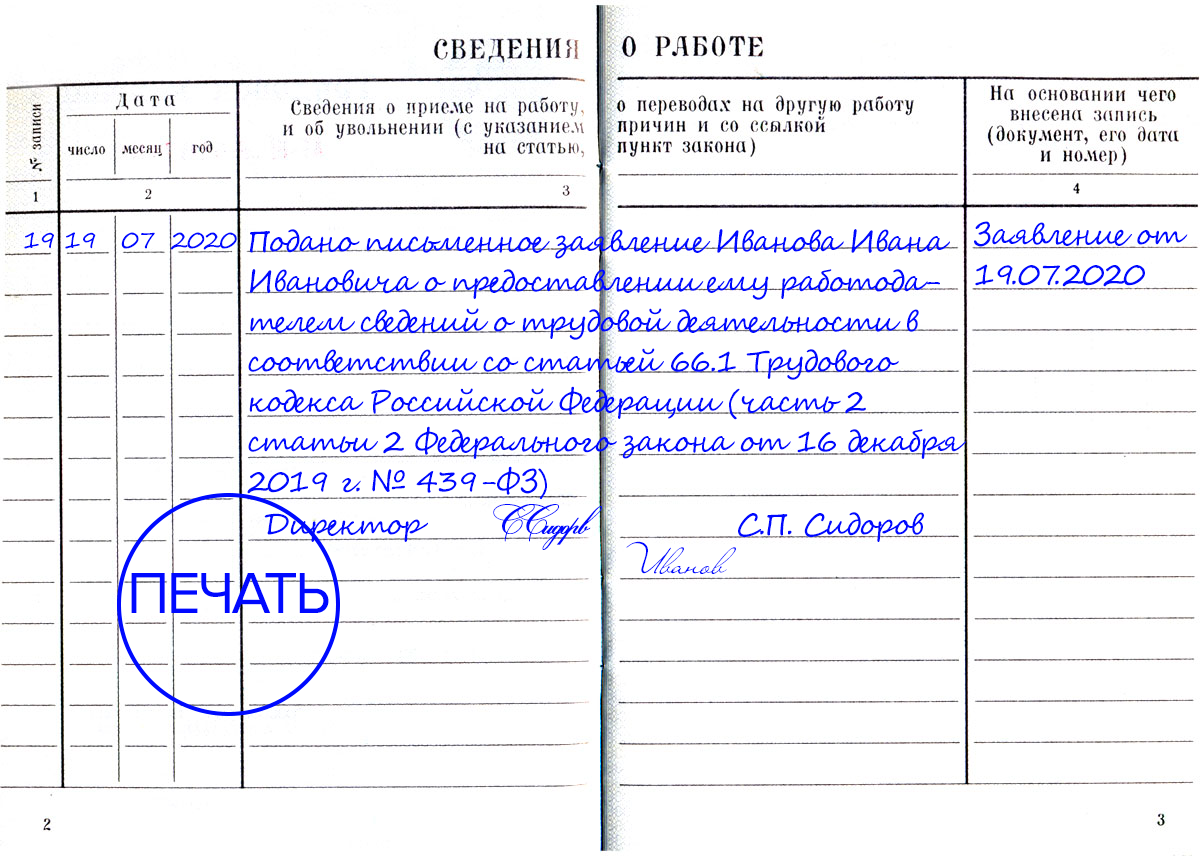 СВЕДЕНИЯ О РАБОТЕ
№ записи
Дата
число месяц год
Сведения о приеме на работу, о переводах на другую работу
и об увольнении (с указанием причин и со ссылкой
на статью, пункт закона)
На основании чего
внесена запись
(документ, его дата
и номер)
1 2 3 4
19 19 07 2020 Подано письменное заявление Иванова Ивана Заявление от
Ивановича о предоставлении ему работода- 19.07.2020
телем сведений о трудовой деятельности в
соответствии со статьей 66.1 Трудового
кодекса Российской Федерации (часть 2
статьи 2 Федерального закона от 16 декабря
2019 г. № 439-ФЗ)
Директор ССидорв С.П. Сидоров
Иванов
ПЕЧАТЬ
2 3